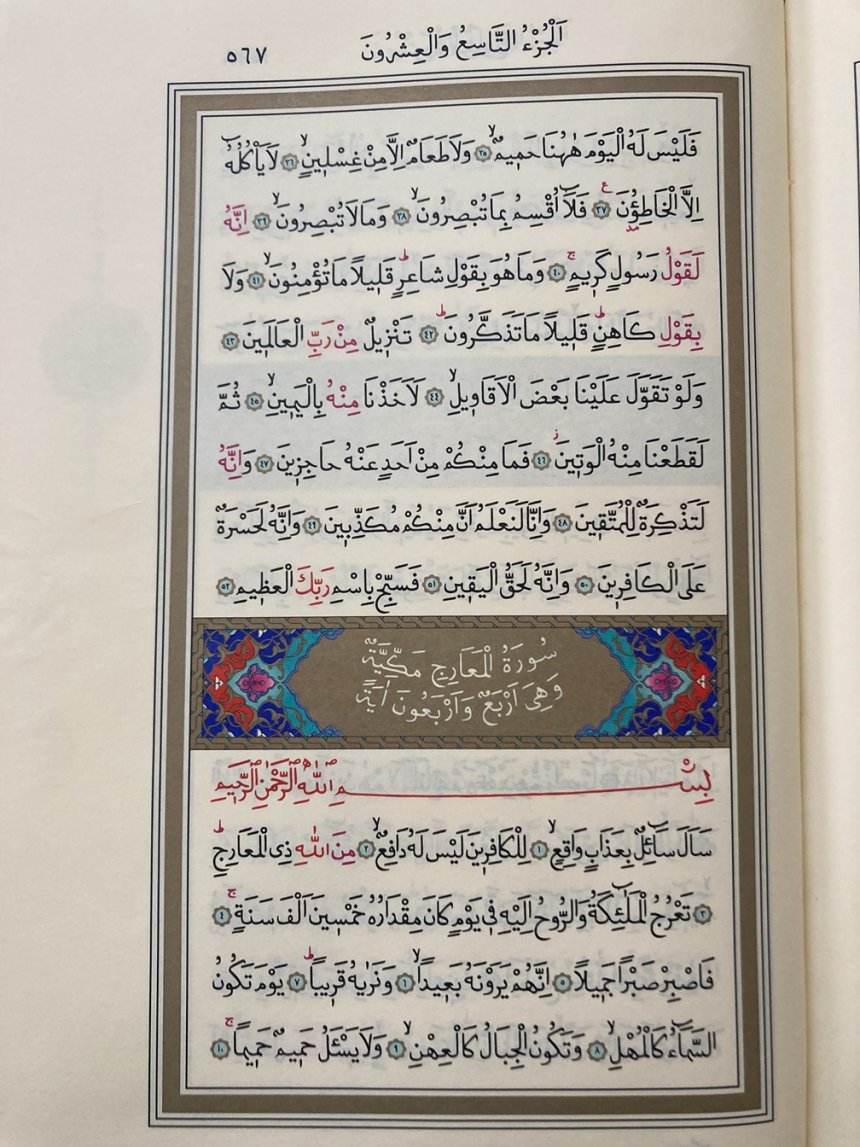 اَلْجُزْءُ التَّاسِعُ وَالْعِشْرُونَ
٥٦٧
فَلَيْسَ لَهُ الْيَوْمَ هٰهُنَا حَم۪يمٌۙ ﴿٣٥﴾ وَلَا طَعَامٌ اِلَّا مِنْ غِسْل۪ينٍۙ ﴿٣٦﴾ لَا يَأْكُلُهُٓ
اِلَّا الْخَاطِؤُ۫نَ ﴿٣٧﴾ فَلَٓا اُقْسِمُ بِمَا تُبْصِرُونَۙ ﴿٣٨﴾ وَمَا لَا تُبْصِرُونَۙ ﴿٣٩﴾ اِنَّهُ
لَقَوْلُ رَسُولٍ كَر۪يمٍۚ ﴿٤٠﴾ وَمَا هُوَ بِقَوْلِ شَاعِرٍۜ قَل۪يلاً مَا تُؤْمِنُونَۙ ﴿٤١﴾ وَلَا
بِقَوْلِ كَاهِنٍۜ قَل۪يلاً مَا تَذَكَّرُونَۜ ﴿٤٢﴾ تَنْز۪يلٌ مِنْ رَبِّ الْعَالَم۪ينَ ﴿٤٣﴾
وَلَوْ تَقَوَّلَ عَلَيْنَا بَعْضَ الْاَقَاو۪يلِۙ ﴿٤٤﴾ لَاَخَذْنَا مِنْهُ بِالْيَم۪ينِۙ ﴿٤٥﴾ ثُمَّ
لَقَطَعْنَا مِنْهُ الْوَت۪ينَۘ ﴿٤٦﴾ فَمَا مِنْكُمْ مِنْ اَحَدٍ عَنْهُ حَاجِز۪ينَ ﴿٤٧﴾ وَاِنَّهُ
لَتَذْكِرَةٌ لِلْمُتَّق۪ينَ ﴿٤٨﴾ وَاِنَّا لَنَعْلَمُ اَنَّ مِنْكُمْ مُكَذِّب۪ينَ ﴿٤٩﴾ وَاِنَّهُ لَحَسْرَةٌ
عَلَى الْكَافِر۪ينَ ﴿٥٠﴾ وَاِنَّهُ لَحَقُّ الْيَق۪ينِ ﴿٥١﴾ فَسَبِّحْ بِاسْمِ رَبِّكَ الْعَظ۪يمِ ﴿٥٢﴾
سُورَةُ الْمَعَارِجِ مَكِّيَّةٌ
وَهِىَ اَرْبَعٌ وَاَرْبَعُونَ اٰيَةً
بِسْمِ اللّٰهِ الرَّحْمٰنِ الرَّح۪يمِ
سَاَلَ سَٓائِلٌ بِعَذَابٍ وَاقِعٍۙ ﴿١﴾ لِلْكَافِر۪ينَ لَيْسَ لَهُ دَافِعٌۙ ﴿٢﴾ مِنَ اللّٰهِ ذِى الْمَعَارِجِۜ
﴿٣﴾ تَعْرُجُ الْمَلٰٓئِكَةُ وَالرُّوحُ اِلَيْهِ ف۪ى يَوْمٍ كَانَ مِقْدَارُهُ خَمْس۪ينَ اَلْفَ سَنَةٍۚ ﴿٤﴾
فَاصْبِرْ صَبْراً جَم۪يلاً ﴿٥﴾ اِنَّهُمْ يَرَوْنَهُ بَع۪يداًۙ ﴿٦﴾ وَنَرٰيهُ قَر۪يباًۜ ﴿٧﴾ يَوْمَ تَكُونُ
السَّمَٓاءُ كَالْمُهْلِۙ ﴿٨﴾ وَتَكُونُ الْجِبَالُ كَالْعِهْنِۙ ﴿٩﴾ وَلَا يَسْـَٔلُ حَم۪يمٌ حَم۪يماًۚ ﴿١٠﴾